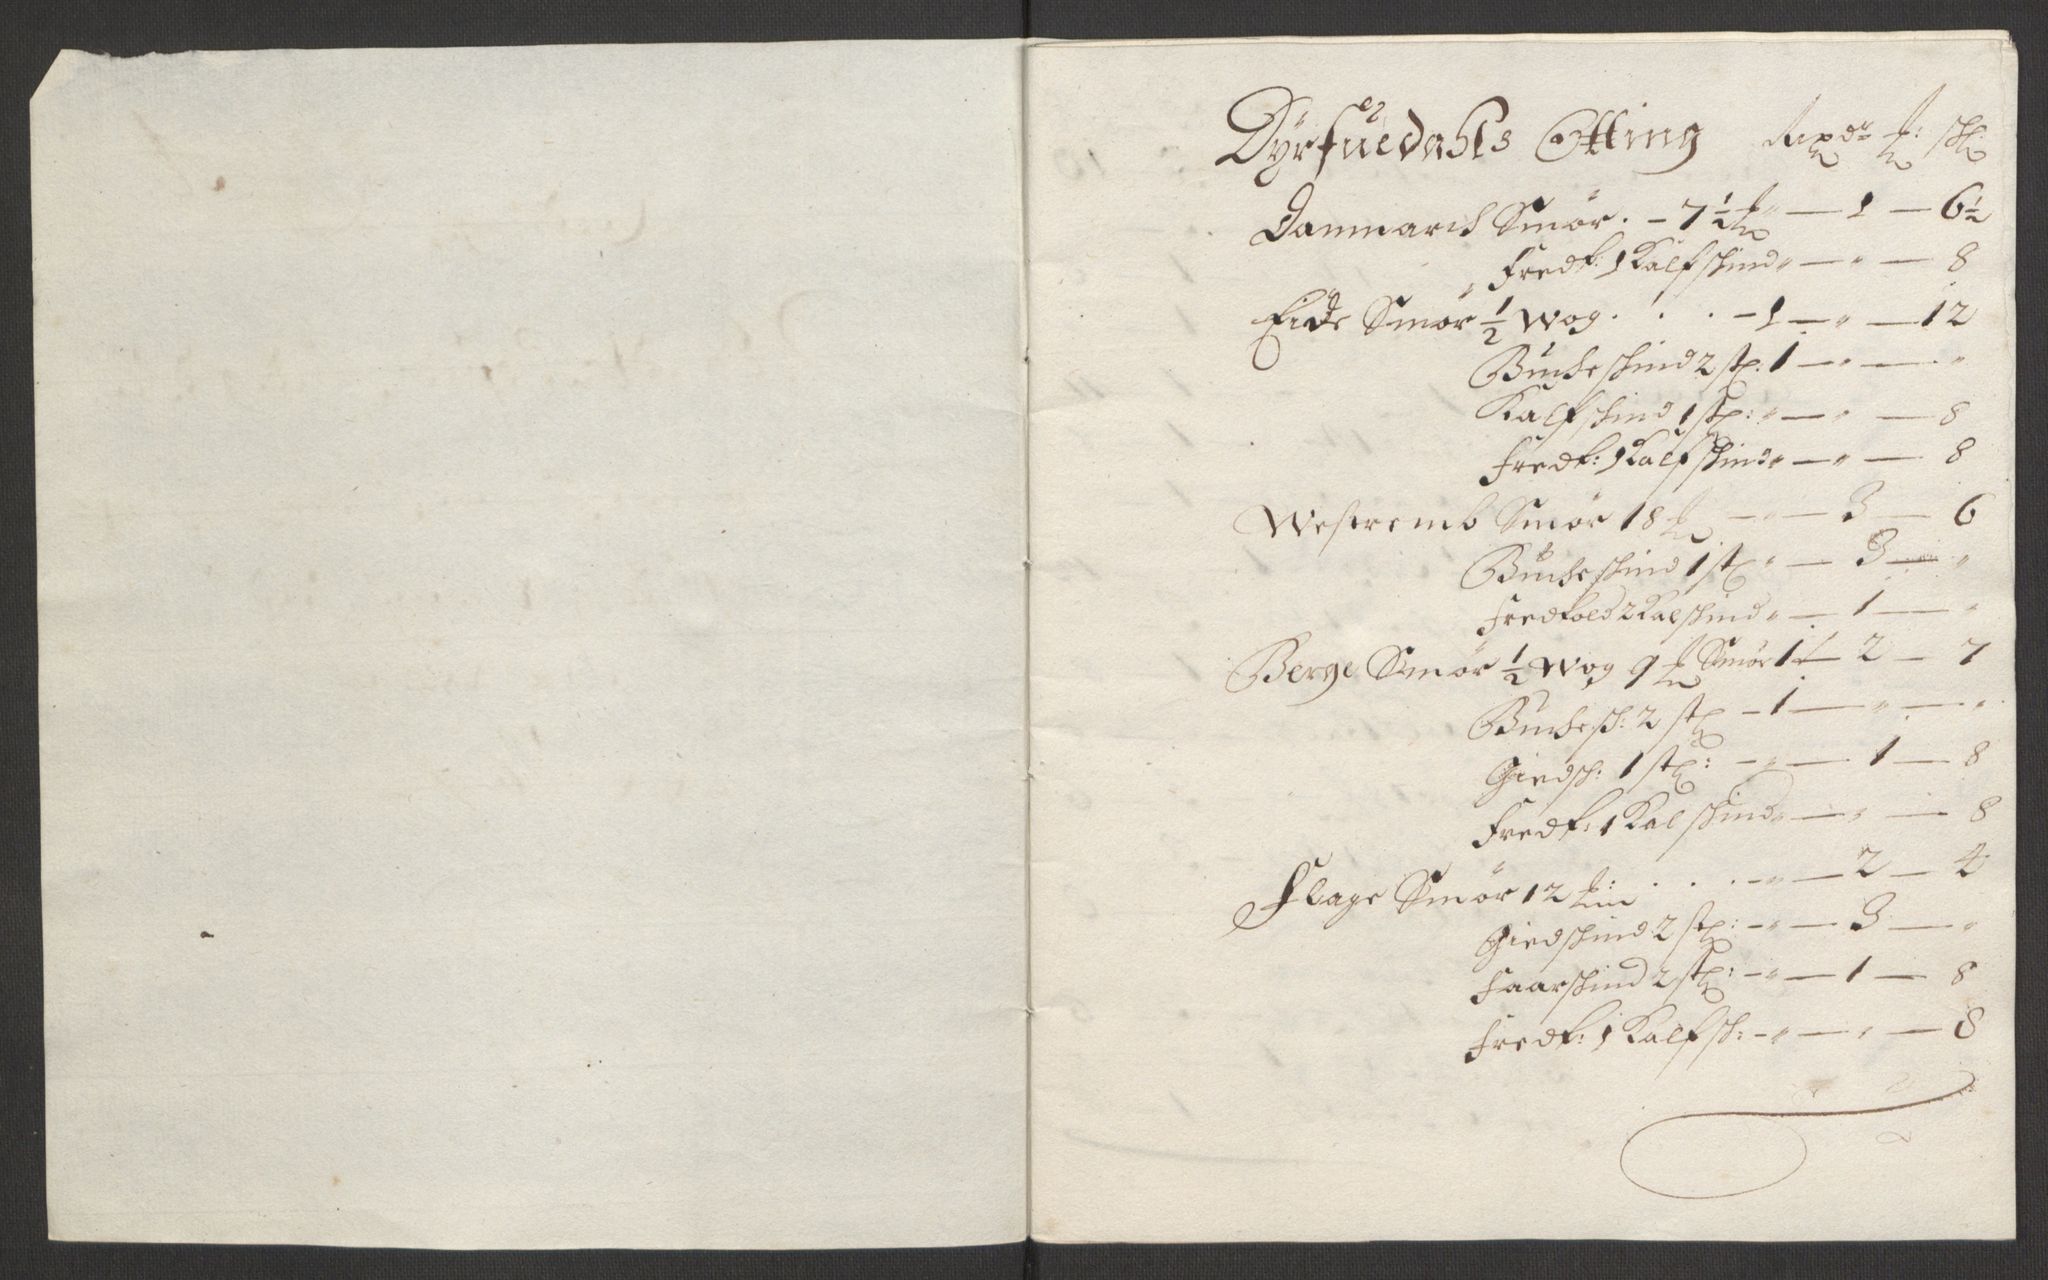 Dyrfuedahls Otting Rixdr ℔: sk:
Danmarch Smør. - 7½ ℔ " — 1 — 6½
Fredk: 1 Kalfskind " — " — 8
Eide Smør ½ Wog . . . - 1 — " — 12
Buckeskind 2 stk: 1 — " — "
Kalfskind 1 stk: " — " — 8
Fredk: 1 Kalfskind " — " — 8
Westremb Smør 18 ℔ — " — 3 — 6
Buckeskind 1 stk " — 3 — "
Fredkold 2 Kalskind " — 1 — "
Berge Smør ½ Wog 9 ℔ Smør 1 — 2 — 7
Buckesk: 2 stk - 1 — " — "
Giedsk: 1 stk: - " — 1 — 8
Fredk: 1 Kalskind " — " — 8
Flage Smør 12 ℔: . . . - " — 2 — 4
Giedskind 2 stk: - " — 3 — "
Faarskind 2 stk: - " — 1 — 8
Fredk: 1 Kalfsk: - " — " — 8